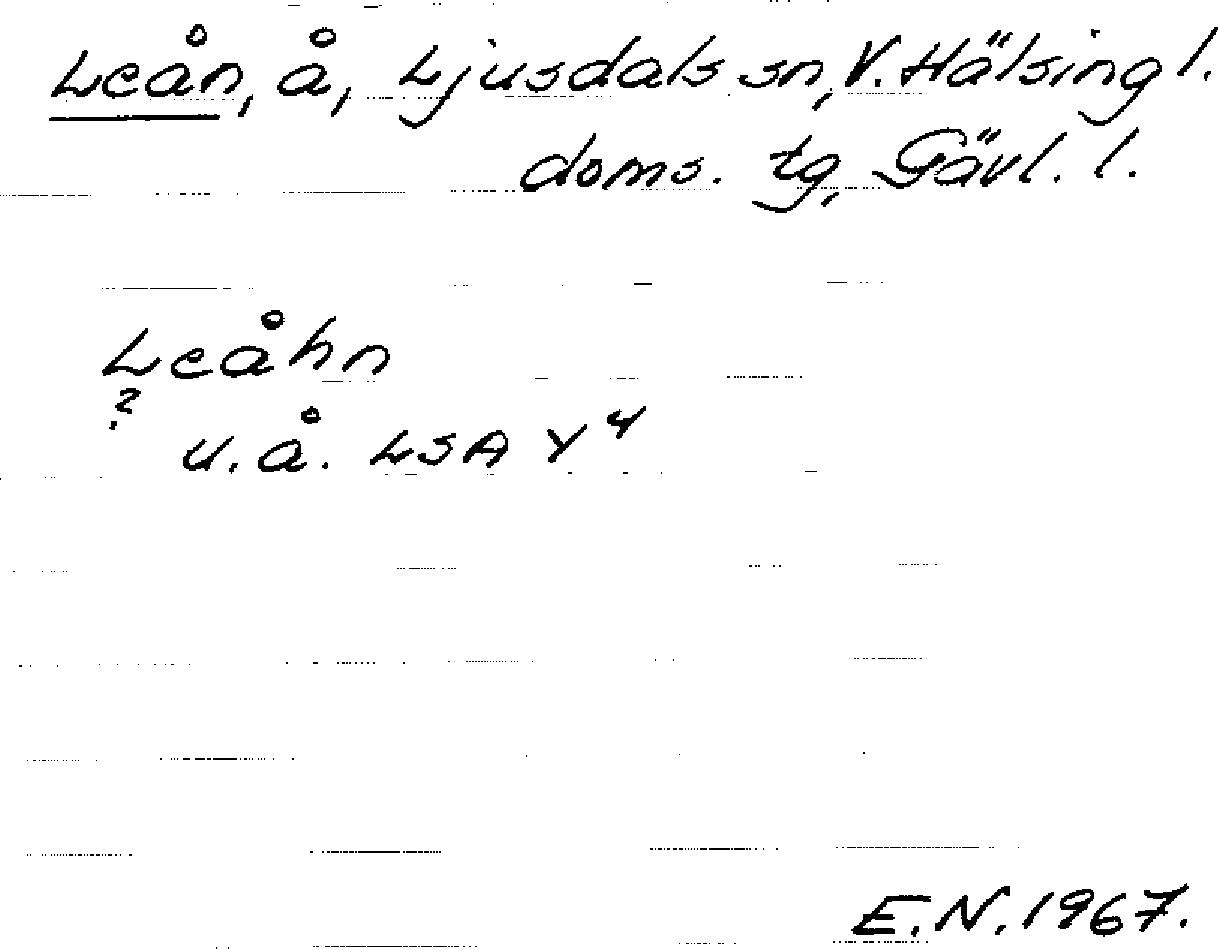 Leån, å, Ljusdals sn, V. Hälsingl.
doms. tg, Gävl. l.
Leåhn
?
u. å. LSA Y 4
E.N. 1967.